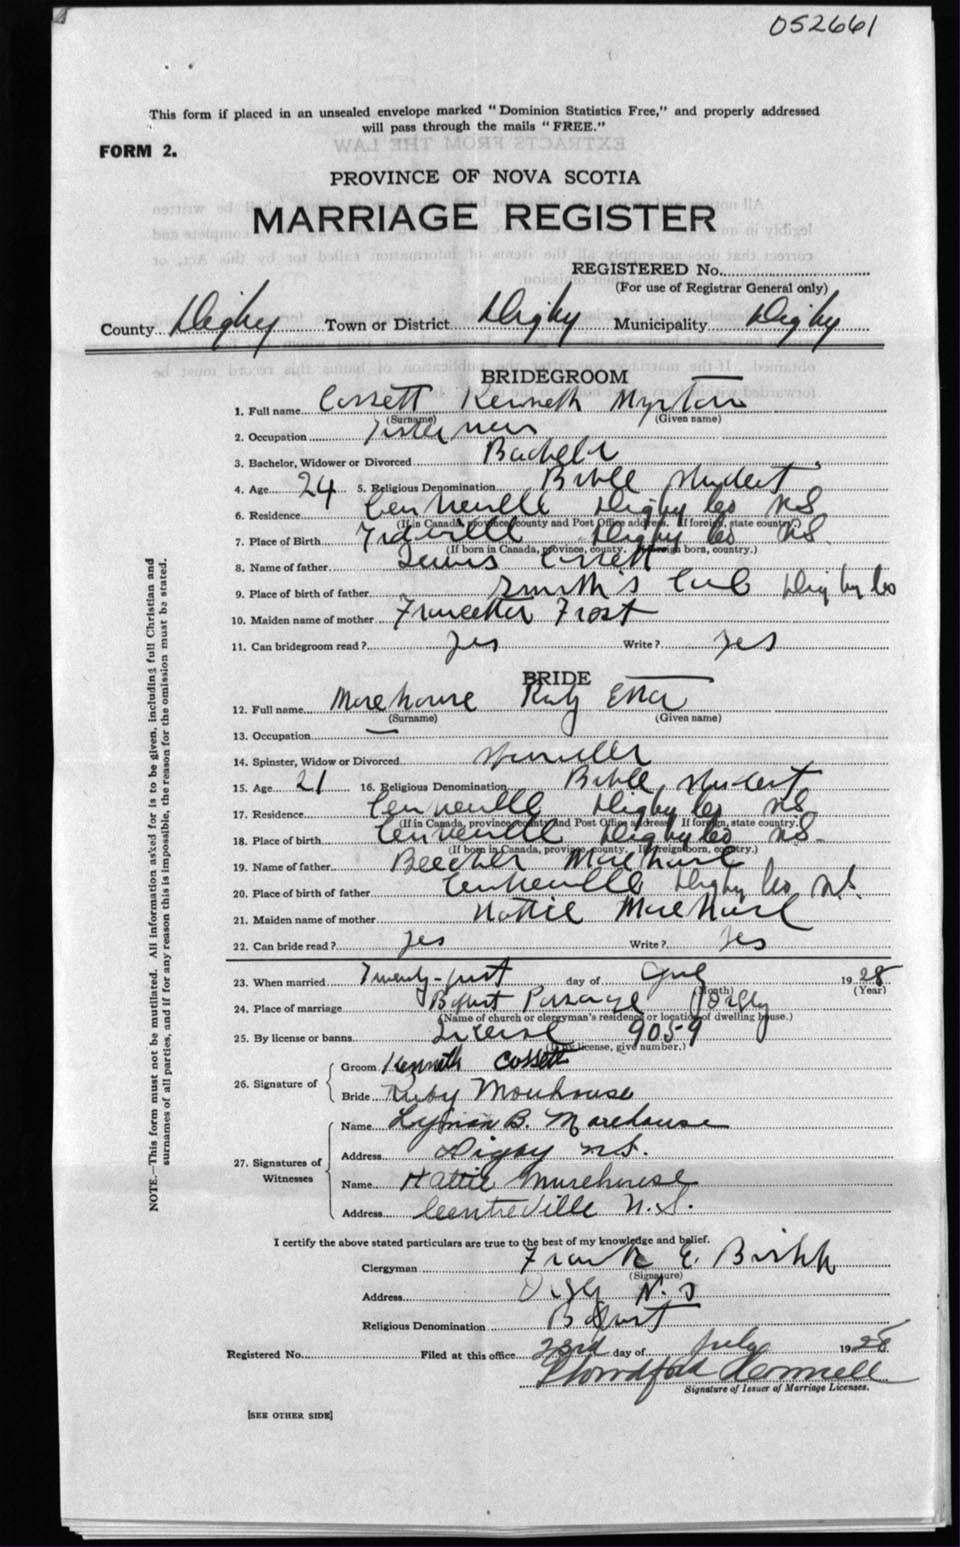 052661
This form if placed in an unsealed envelope marked "Dominion Statistics Free," and properly addressed
will pass through the mails "FREE."
FORM 2.
PROVINCE OF NOVA SCOTIA
MARRIAGE REGISTER
REGISTERED No.
(For use of Registrar General only)
County Digby Town or District Digby Municipality Digby
BRIDEGROOM
1. Full name Cossett Kenneth
(Surname) (Given name)
2. Occupation
3. Bachelor, Widower or Divorced Bachelor
4. Age 24 5. Religious Denomination Bible Student
6. Residence Centreville Digby Co NS
(If in Canada, province, county and Post Office address. If foreign, state country.)
7. Place of Birth Digby Co NS.
(If born in Canada, province, county. If foreign born, country.)
8. Name of father Cossett
9. Place of birth of father Smith's Cove Digby Co
10. Maiden name of mother Frost
11. Can bridegroom read? Yes Write? Yes
BRIDE
12. Full name Morehouse Ruby Etta
(Surname) (Given name)
13. Occupation —
14. Spinster, Widow or Divorced Spinster
15. Age 21 16. Religious Denomination Bible Student
17. Residence Centreville Digby Co NS
(If in Canada, province, county and Post Office address. If foreign, state country.)
18. Place of birth Centreville Digby Co NS
(If born in Canada, province, county. If foreign born, country.)
19. Name of father Beecher Morehouse
20. Place of birth of father Centreville Digby Co N.S.
21. Maiden name of mother Hattie Morehouse
22. Can bride read? Yes Write? Yes
23. When married Twenty-first day of July 1928
(Month) (Year)
24. Place of marriage Baptist Parsonage Digby
(Name of church or clergyman's residence or location of dwelling house.)
25. By license or banns License 9059
(If by license, give number.)
26. Signature of
Groom Kenneth Cossett
Bride Ruby Morehouse
27. Signatures of Witnesses
Name Lyman B. Morehouse
Address Digby N.S.
Name Hattie Morehouse
Address Centreville N.S.
I certify the above stated particulars are true to the best of my knowledge and belief.
Clergyman Frank E.
(Signature)
Address Digby N.S
Religious Denomination Baptist
Registered No. Filed at this office 23rd day of July 1928
Signature of Issuer of Marriage Licenses.
[SEE OTHER SIDE]
NOTE.—This form must not be mutilated. All information asked for is to be given, including full Christian and
surnames of all parties, and if for any reason this is impossible, the reason for the omission must be stated.